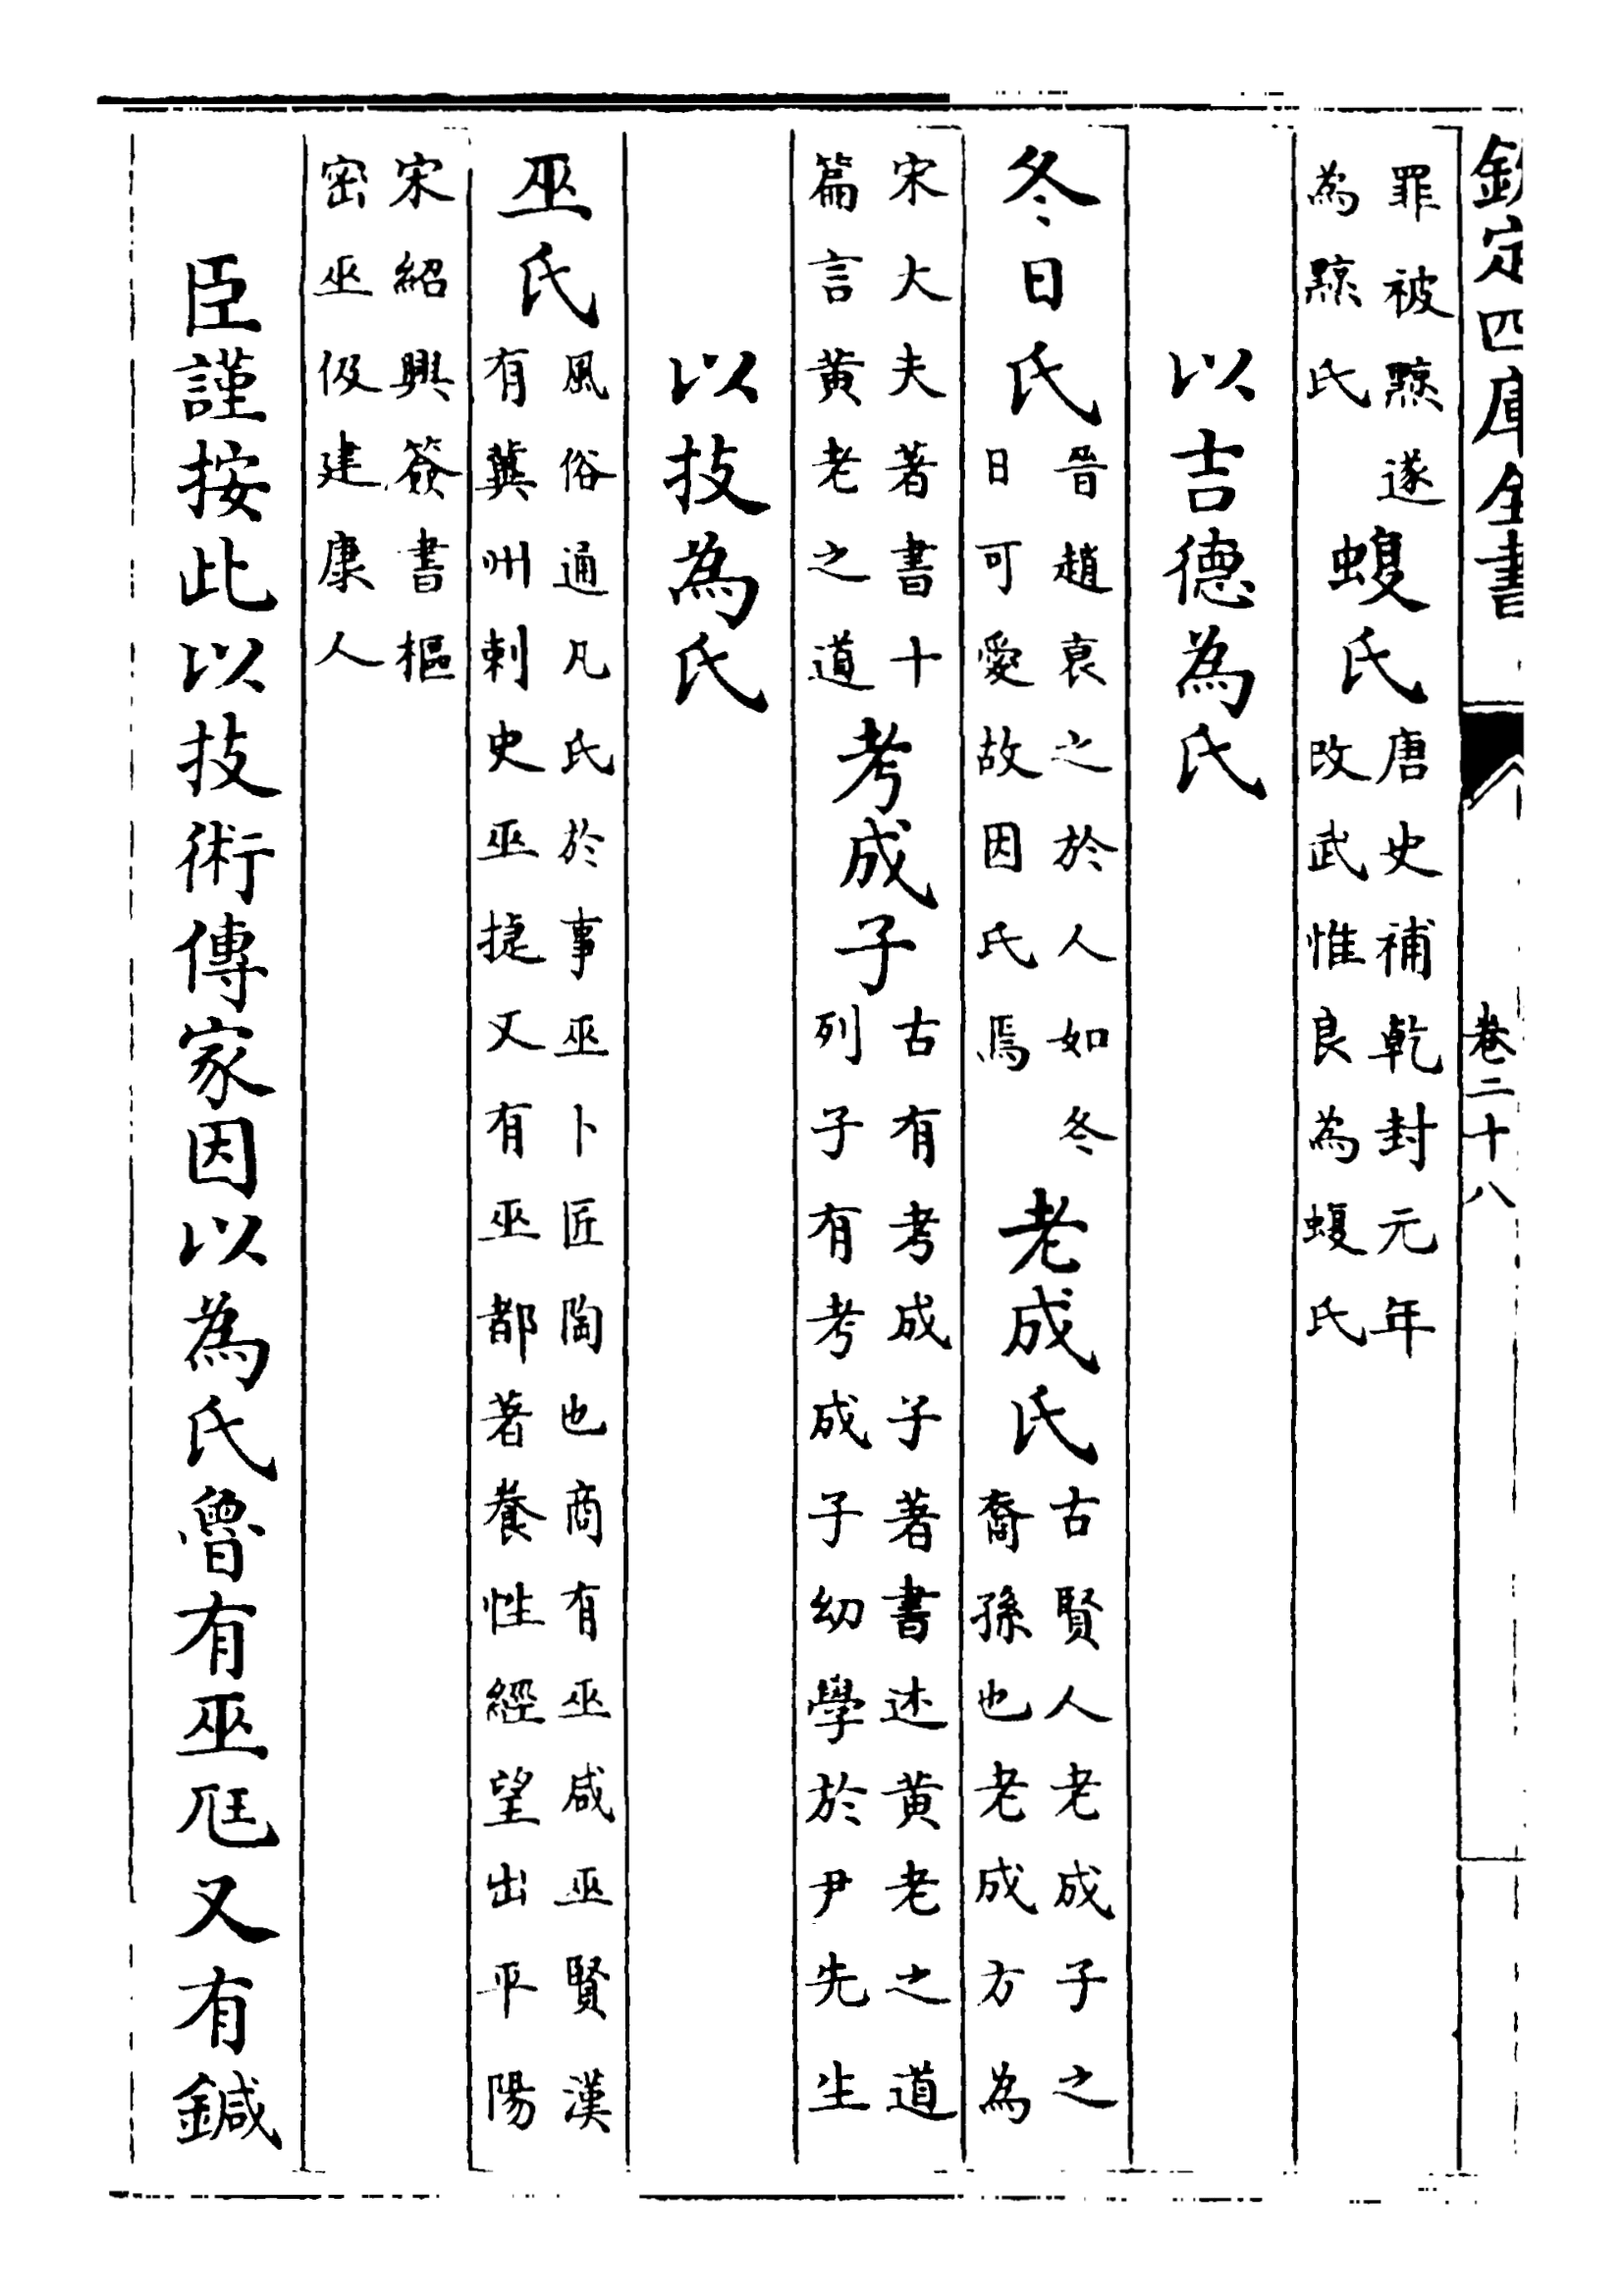 欽定四庫全書 卷二十八
罪被黥遂
為黥氏
蝮氏
唐史補乾封元年
改武惟良為蝮氏
以吉德為氏
冬日氏
晉趙衰之於人如冬
日可愛故因氏焉
老成氏
古賢人老成子之
裔孫也老成方為
宋大夫著書十
篇言黄老之道
考成子
古有考成子著書述黄老之道
列子有考成子幼學於尹先生
以技為氏
巫氏
風俗通凡氏於事巫卜匠陶也商有巫咸巫賢漢
有冀州刺史巫捷又有巫都著養性經望出平陽
宋紹興簽書樞
密巫伋建康人
臣謹按此以技術傳家因以為氏魯有巫尫又有鍼